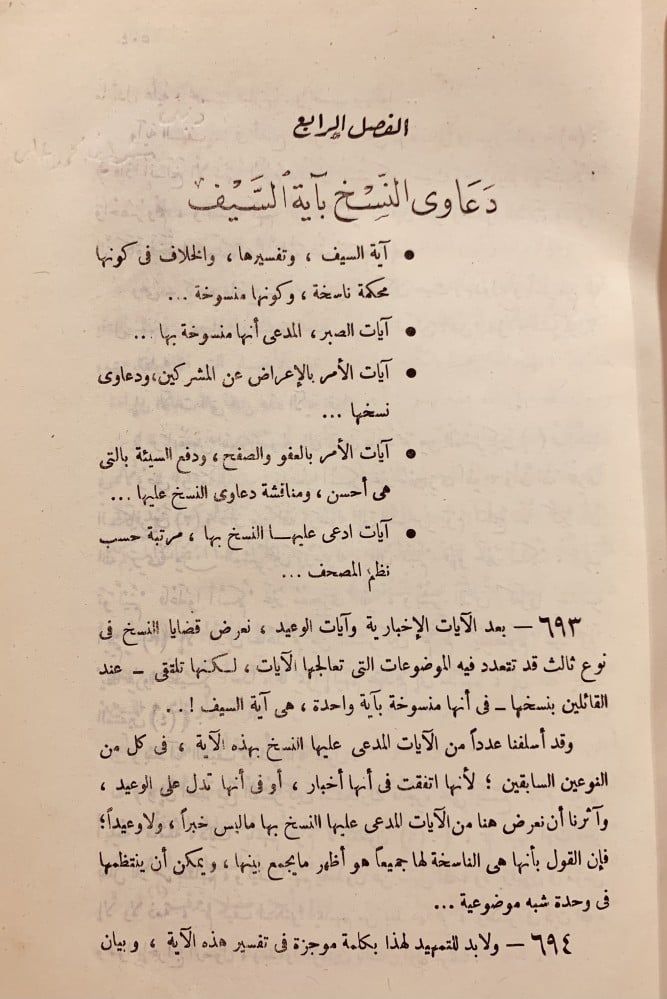 الفصل الرابع
دَعَاوى النَّسْخ بآية السَّيْف
● آية السيف ، وتفسيرها ، والخلاف فى كونها
محكمة ناسخة ، وكونها منسوخة ...
● آيات الصبر ، المدعى أنها منسوخة بها ...
● آيات الأمر بالإعراض عن المشركين،ودعاوى
نسخها ...
● آيات الأمر بالعفو والصفح ، ودفع السيئة بالتى
هى أحسن ، ومناقشة دعاوى النسخ عليها ...
● آيات ادعى عليهـــا النسخ بها ، مرتبة حسب
نظم المصحف ...
٦٩٣ — بعد الآيات الإخبارية وآيات الوعيد ، نعرض قضايا النسخ فى
نوع ثالث قد تتعدد فيه الموضوعات التى تعالجها الآيات ، لـكنها تلتقى – عند
القائلين بنسخها – فى أنها منسوخة بآية واحدة ، هى آية السيف ! . .
وقد أسلفنا عدداً من الآيات المدعى عليها النسخ بهذه الآية ، فى كل من
النوعين السابقين ؛ لأنها اتفقت فى أنها أخبار ، أو فى أنها تدل على الوعيد ،
وآثرنا أن نعرض هنا من الآيات المدعى عليها النسخ بها ماليس خبراً ، ولاوعيداً؛
فإن القول بأنها هى الناسخة لها جميعاً هو أظهر مايجمع بينها ، ويمكن أن ينتظمها
فى وحدة شبه موضوعية ...
٦٩٤ — ولابد للتمهيد لهذا بكلمة موجزة فى تفسير هذه الآية ، وبيان